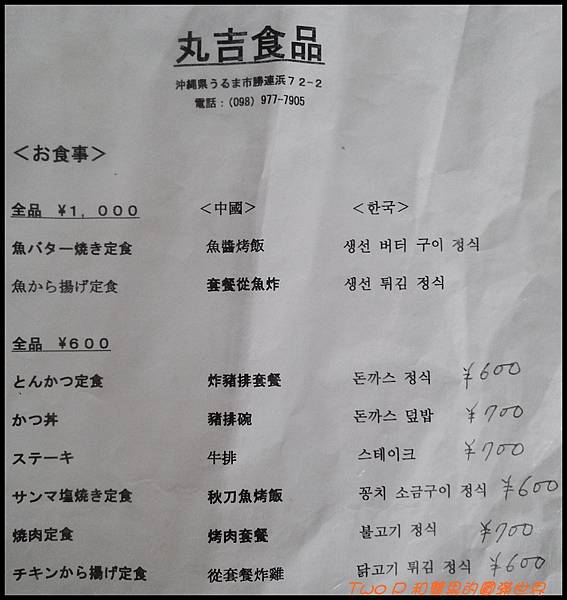 丸吉食品
沖縄県うるま市勝連浜72-2
電話:(098) 977-7905
<お食事>
全品 ¥1,000 <中國> <한국>
魚バター焼き定食 魚醬烤飯 생선 버터 구이 정식
魚から揚げ定食 套餐從魚炸 생선 튀김 정식
全品 ¥600
とんかつ定食 炸豬排套餐 돈까스 정식 ¥600
かつ丼 豬排碗 돈까스 덮밥 ¥700
ステーキ 牛排 스테이크 ¥700
サンマ塩焼き定食 秋刀魚烤飯 꽁치 소금구이 정식 ¥600
焼肉定食 烤肉套餐 불고기 정식 ¥700
チキンから揚げ定食 從套餐炸雞 닭고기 튀김 정식 ¥600
Two P 和雙果的圓滿世界